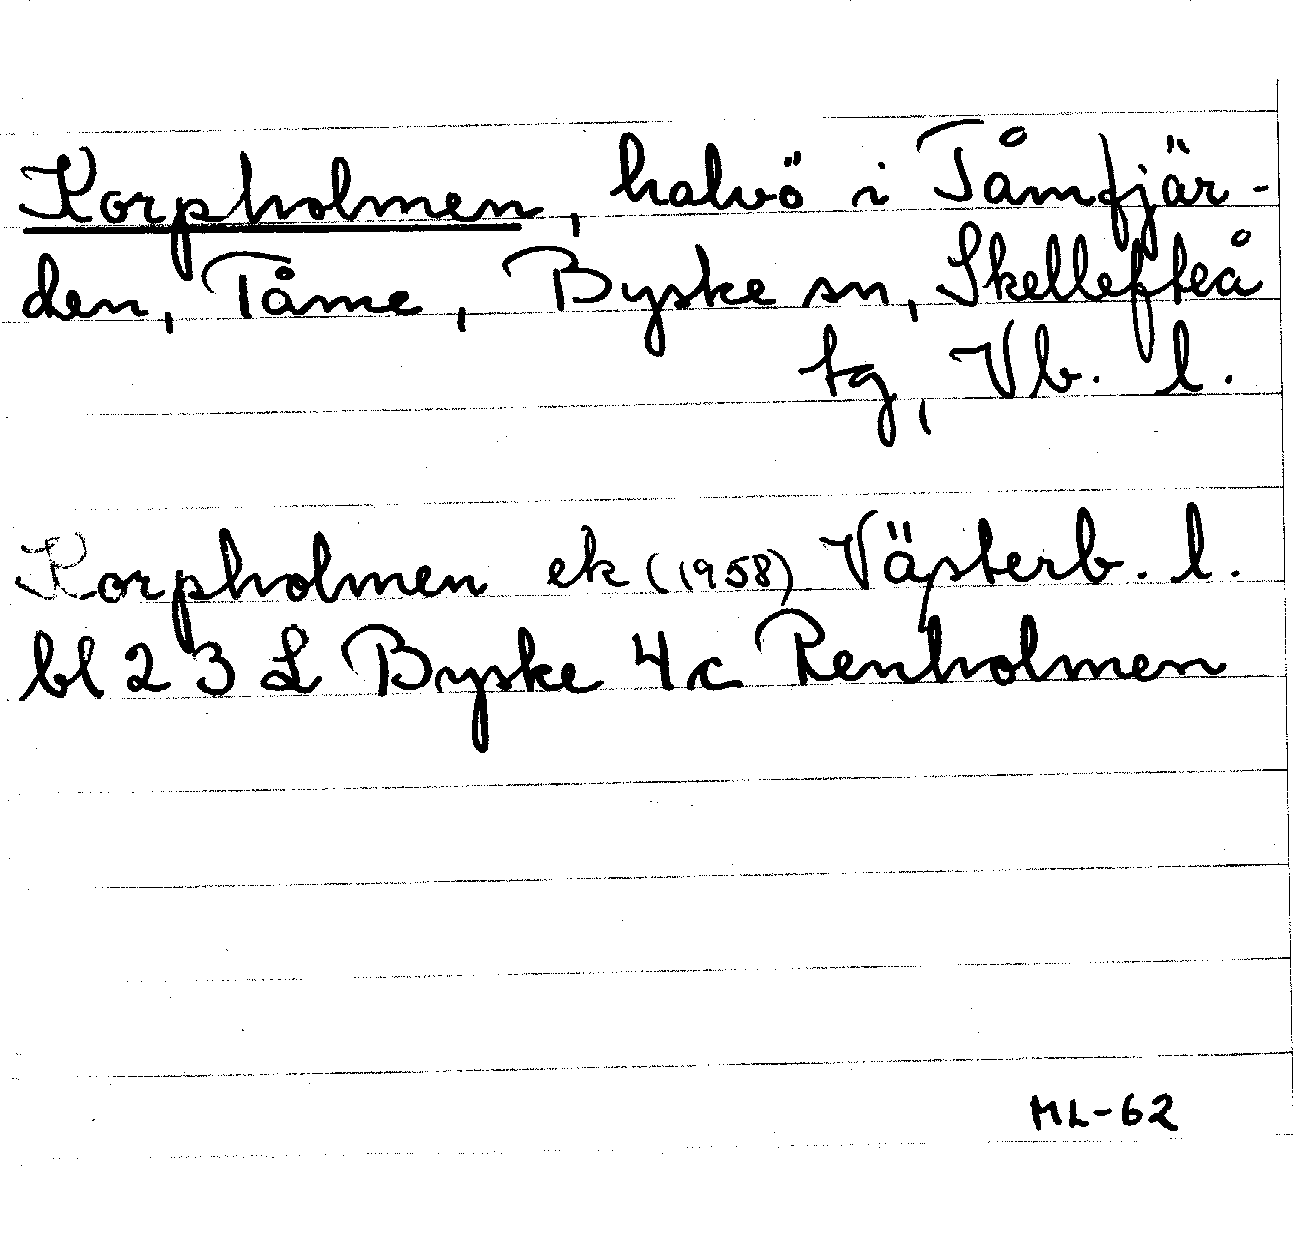 Korpholmen, halvö i Tåmfjär-
den, Tåme, Byske sn, Skellefteå
tg, Vb. l.
Korpholmen ek (1958) Västerb. l.
bl 23 L Byske 4c Renholmen
ML-62